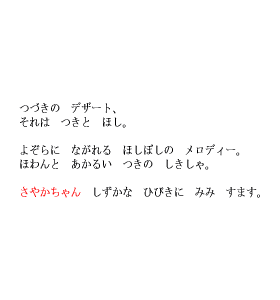 つづきの　デザート、
それは　つきと　ほし。
よぞらに　ながれる　ほしぼしの　メロディー。
ほわんと　あかるい　つきの　しきしゃ。
さやかちゃん　しずかな　ひびきに　みみ　すます。